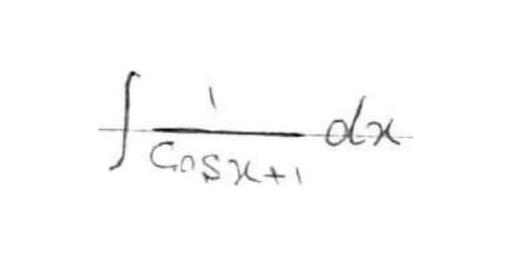 ∫ 1/(cos x + 1) dx